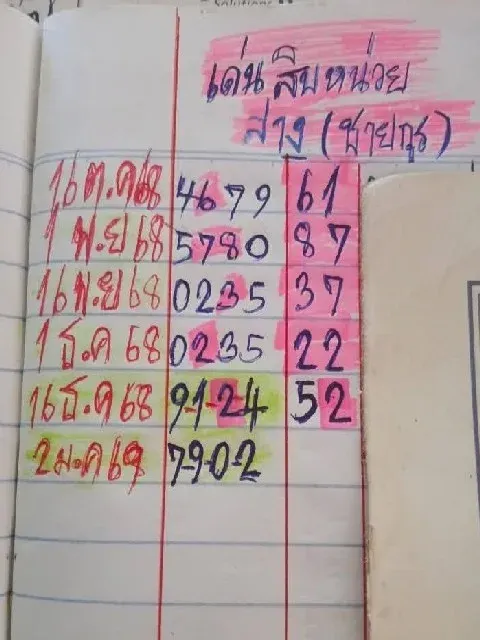 เด่นสิบหน่วย
ล่าง (ชายกุร)
16 ต.ค 68 4679 61
1 พ.ย 68 5780 87
16 พ.ย 68 0235 37
1 ธ.ค 68 0235 22
16 ธ.ค 68 9-1-24 52
2 ม.ค 69 7-9-0-2